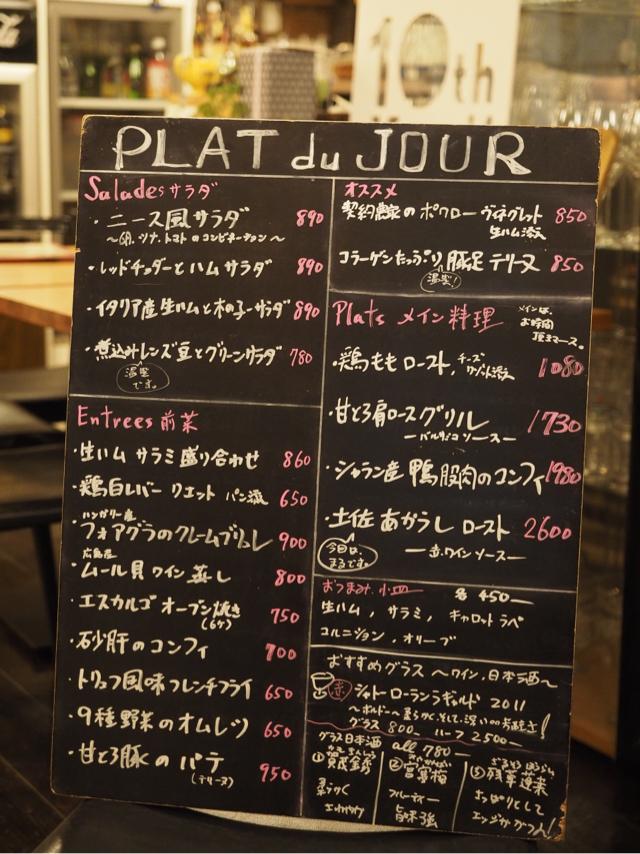 10th
PLAT du JOUR
Salades サラダ
・ニース風サラダ 890
・レッドチェダーとハムサラダ 890
・イタリア産生ハムと木の子サラダ 890
・煮込みレンズ豆とグリーンサラダ 780
温製です。
Entrees 前菜
・生ハム サラミ 盛り合わせ 860
・鶏白レバー リエット パン添え 650
ハンガリー産
・フォアグラのクレームブリュレ 900
広島産
・ムール貝 ワイン蒸し 800
・エスカルゴ オーブン焼き 750
(6ケ)
・砂肝のコンフィ 700
・トリュフ風味フレンチフライ 650
・9種野菜のオムレツ 650
・甘とろ豚のパテ 950
(テリーヌ)
オススメ
契約農家のポワロー ヴィネグレット 850
生ハム添え
コラーゲンたっぷり豚足テリーヌ 850
温製!
Plats メイン料理
メインは、
お時間
頂きマース。
・鶏ももロースト, チーズ 1080
・甘とろ肩ロースグリル 1730
―バルサミコソース―
・シャラン産 鴨股肉のコンフィ 1980
・土佐あかうし ロースト 2600
―赤ワインソース―
今日は、
まるです。
おつまみ 小皿 各450―
生ハム, サラミ, キャロットラペ
コルニション, オリーブ
おすすめグラス ～ワイン, 日本酒～
赤 シャトーローラン 2011
グラス 800― ハーフ 2500―
グラス日本酒 all 780―
① 賀茂金秀
柔らかく
② 宮寒梅
フルーティー
旨味強
③
さっぱりとして